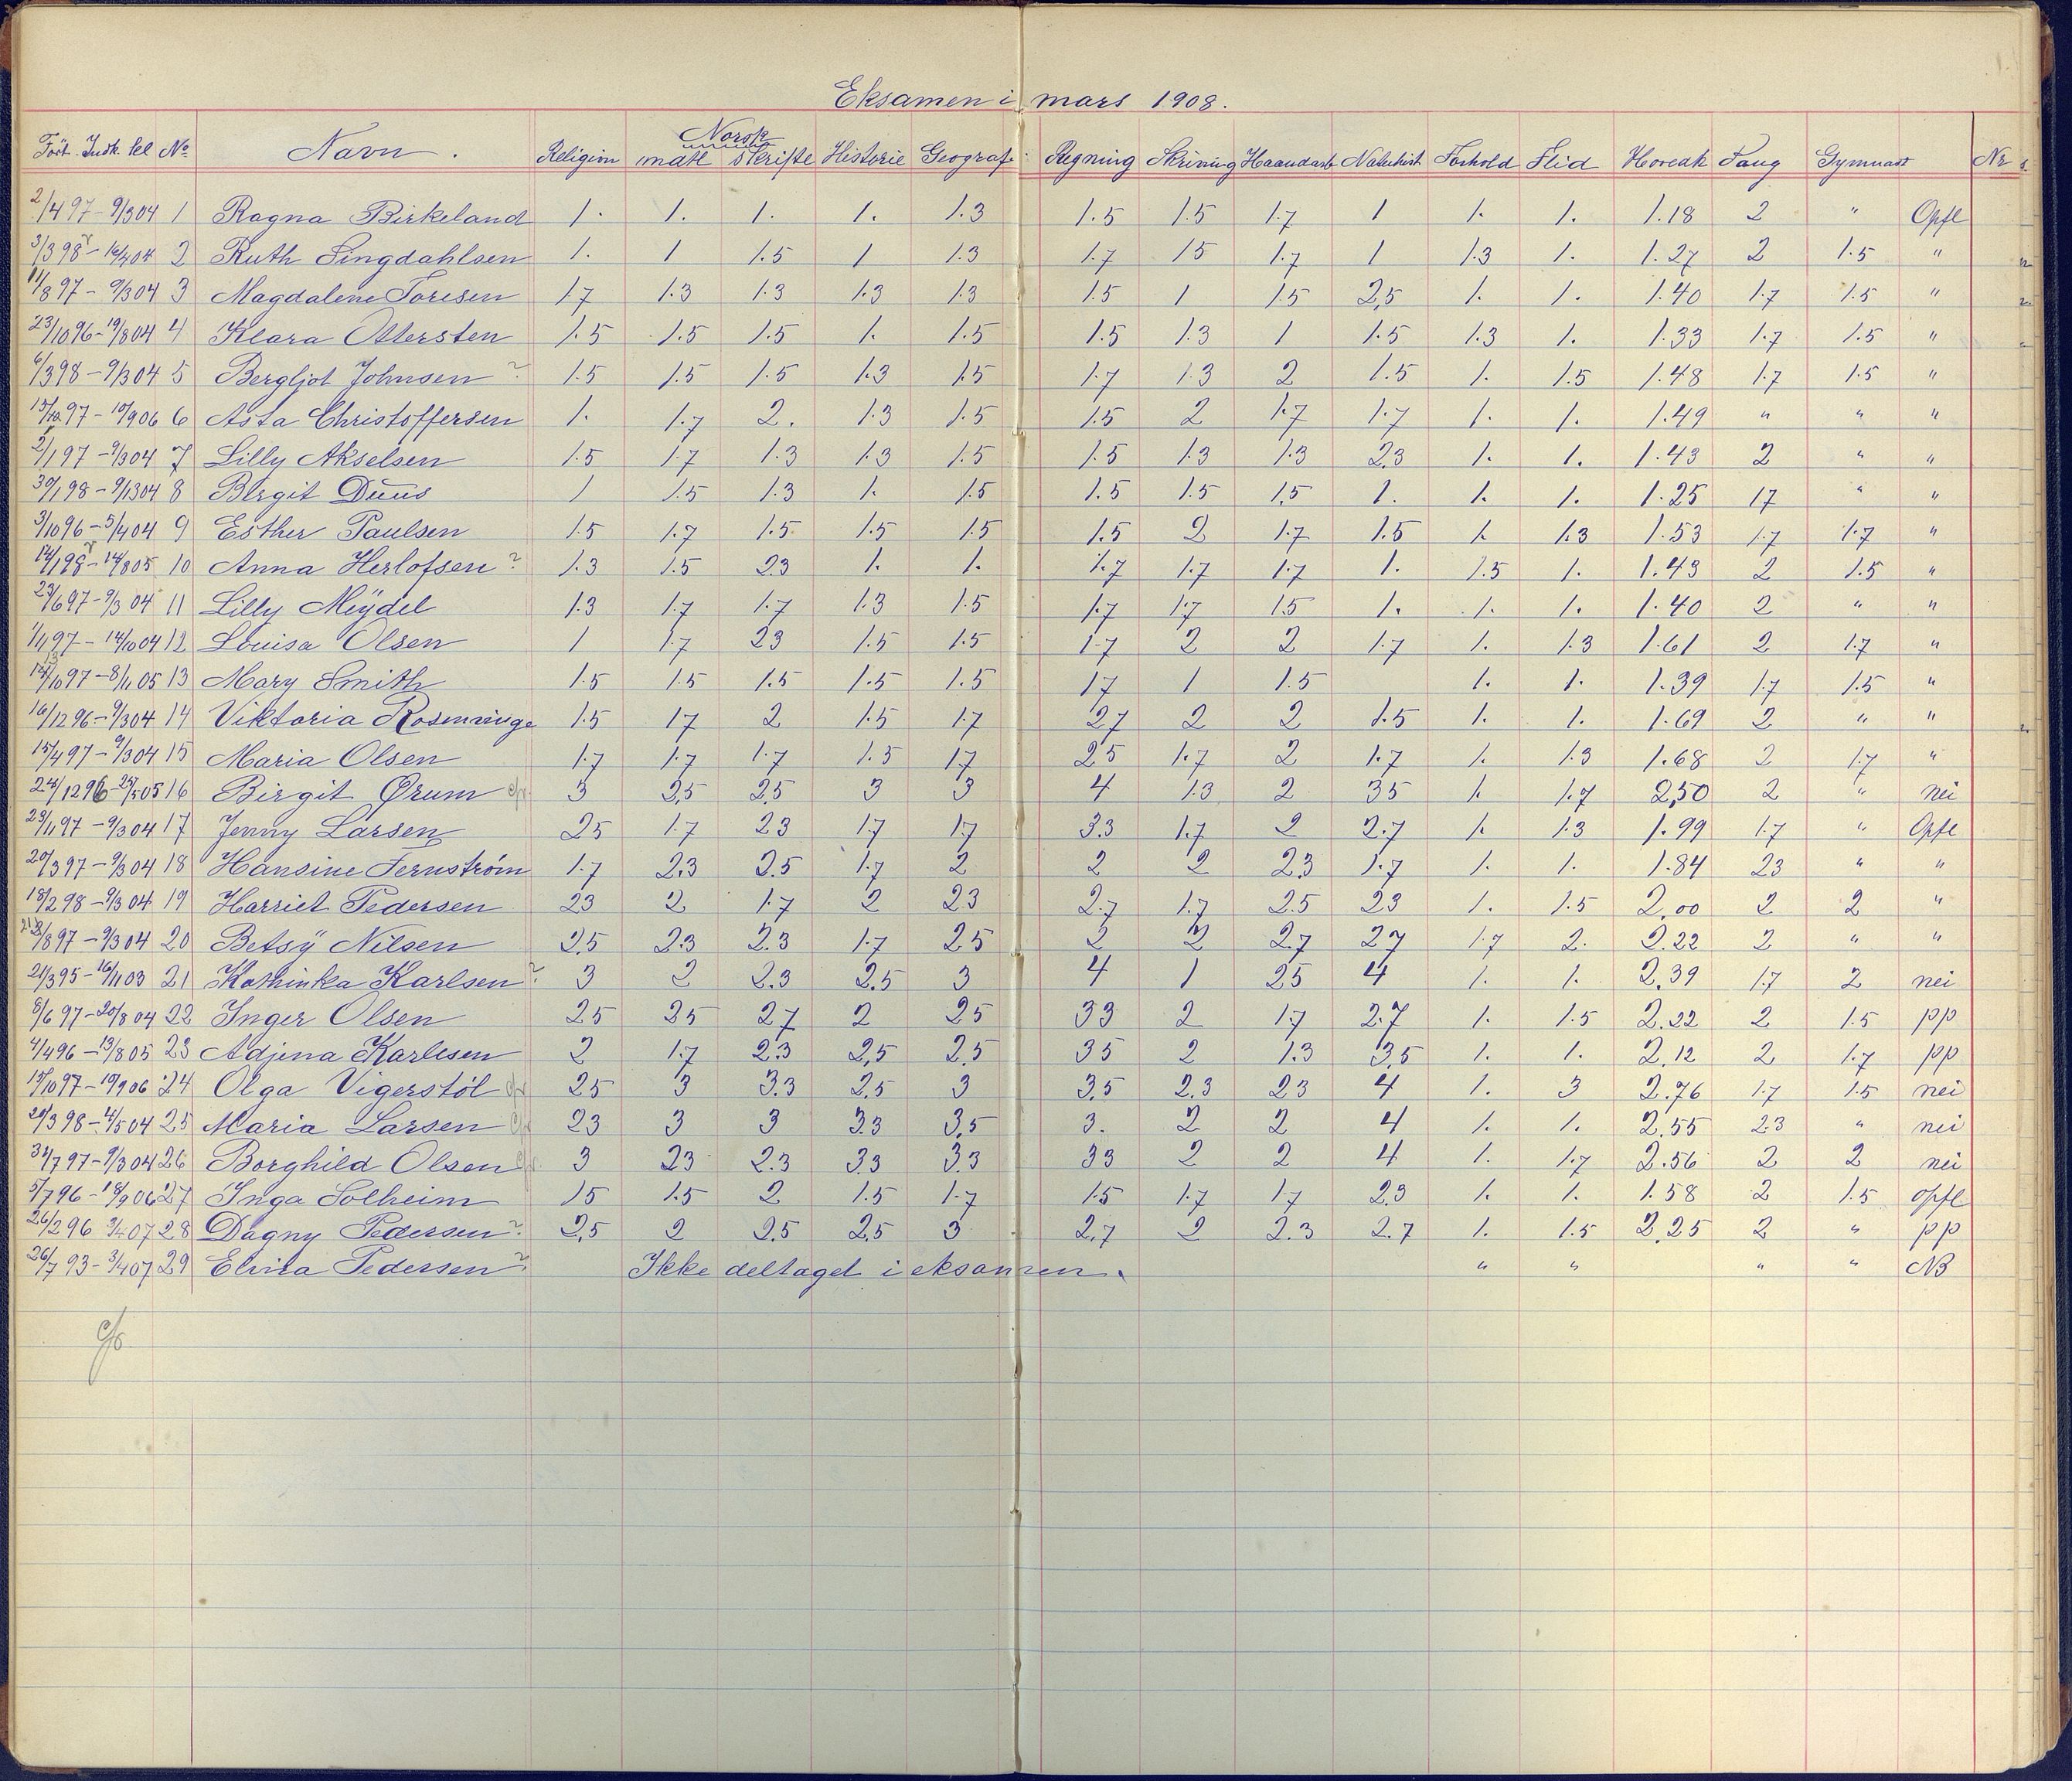 Eksamen i mars 1908.
Født. Indk. kl No Navn. Religion Norsk mdtl Skriftl Historie Geografi Regning Skrivning Haandarb Naturhist Forhold Flid Hovedk Sang Gymnast Nr
2/4 97 - 9/3 04 1 Ragna Birkeland 1. 1. 1. 1. 1.3 1.5 1.5 1.7 1 1. 1. 1.18 2 " Opfl
3/3 98 - 16/4 04 2 Ruth Singdahlsen 1. 1 1.5 1 1.3 1.7 15 1.7 1 1.3 1. 1.27 2 1.5 "
11/8 97 - 9/3 04 3 Magdalene Toresen 1.7 1.3 1.3 1.3 1.3 1.5 1 1.5 2,5 1. 1. 1.40 1.7 1.5 "
23/10 96 - 19/8 04 4 Klara Ottersten 1.5 1.5 1.5 1. 1.5 1.5 1.3 1 1.5 1.3 1. 1.33 1.7 1.5 "
6/3 98 - 9/3 04 5 Bergljot Johnsen ? 1.5 1.5 1.5 1.3 1.5 1.7 1.3 2 1.5 1. 1.5 1.48 1.7 1.5 "
97 - 10/9 06 6 Asta Christoffersen 1. 1.7 2. 1.3 1.5 1.5 2 1.7 1.7 1. 1. 1.49 " " "
2/1 97 - 9/3 04 7 Lilly Akselsen 1.5 1.7 1.3 1.3 1.5 1.5 1.3 1.3 2,3 1. 1. 1.43 2 " "
30/1 98 - 9/3 04 8 Birgit Duus 1 1.5 1.3 1. 1.5 1.5 1.5 1.5 1. 1. 1. 1.25 17 " "
3/10 96 - 5/4 04 9 Esther Paulsen 1.5 1.7 1.5 1.5 1.5 1.5 2 1.7 1.5 1. 1.3 1.53 1.7 1.7 "
14/1 98 - 14/8 05 10 Anna Herlofsen ? 1.3 1.5 23 1. 1. 1.7 1.7 1.7 1. 1.5 1. 1.43 2 1.5 "
23/6 97 - 9/3 04 11 Lilly Meÿdel 1.3 1.7 1.7 1.3 1.5 1.7 1.7 1.5 1. 1. 1. 1.40 2 " "
1/11 97 - 14/10 04 12 Louisa Olsen 1 1.7 23 1.5 1.5 1.7 2 2 1.7 1. 1.3 1.61 2 1.7 "
10 97 - 8/11 05 13 Mary Smith 1.5 1.5 1.5 1.5 1.5 17 1 1.5 1. 1. 1.39 1.7 1.5 "
16/12 96 - 9/3 04 14 Viktoria Rosenvinge 1.5 17 2 1.5 1.7 27 2 2 1.5 1. 1. 1.69 2 " "
15/4 97 - 9/3 04 15 Maria Olsen 1.7 1.7 1.7 1.5 1.7 25 1.7 2 1.7 1. 1.3 1.68 2 1.7 "
12 96 - 05 16 Birgit Ørum 3 2,5 25 3 3 4 1.3 2 35 1. 1.7 2,50 2 " nei
23/11 97 - 9/3 04 17 Jenny Larsen 25 1.7 23 1.7 1.7 3.3 1.7 2 2.7 1. 1.3 1.99 1.7 " Opfl
20/3 97 - 9/3 04 18 Hansine Fernström 1.7 2.3 2.5 1.7 2 2 2 2.3 1.7 1. 1. 1.84 23 " "
18/2 98 - 9/3 04 19 Harriet Pedersen 23 2 1.7 2 23 2.7 1.7 2.5 23 1. 1.5 2,00 2 2 "
/8 97 - 9/3 04 20 Betsÿ Nilsen 2.5 2.3 2.3 1.7 25 2 2 2.7 27 1.7 2. 2.22 2 " "
21/3 95 - 16/11 03 21 Kathinka Karlsen ? 3 2 2.3 2.5 3 4 1 25 4 1. 1. 2,39 1.7 2 nei
8/6 97 - 20/8 04 22 Inger Olsen 25 25 27 2 25 33 2 1.7 2.7 1. 1.5 2.22 2 1.5 pp
4/4 96 - 13/8 05 23 Adjena Karlesen 2 1.7 2.3 2,5 2.5 35 2 1.3 3,5 1. 1. 2,12 2 1.7 pp
15/10 97 - 19/9 06 24 Olga Vigerstøl 25 3 3.3 2.5 3 3,5 2.3 23 4 1. 3 2.76 1.7 1.5 nei
20/3 98 - 4/5 04 25 Maria Larsen 23 3 3 3.3 3,5 3. 2 2 4 1. 1. 2.55 23 " nei
31/7 97 - 9/3 04 26 Borghild Olsen 3 23 2.3 3.3 3.3 33 2 2 4 1. 1.7 2.56 2 2 nei
5/7 96 - 18/9 06 27 Inga Solheim 15 1.5 2 1.5 1.7 1.5 1.7 1.7 2.3 1. 1. 1.58 2 1.5 opfl
26/2 96 3/4 07 28 Dagny Pedersen ? 2,5 2 2.5 2,5 3 2,7 2 2.3 2.7 1. 1.5 2.25 2 " pp
26/7 93 - 3/4 07 29 Elvira Pedersen ? Ikke deltaget i eksamen. " " " " NB